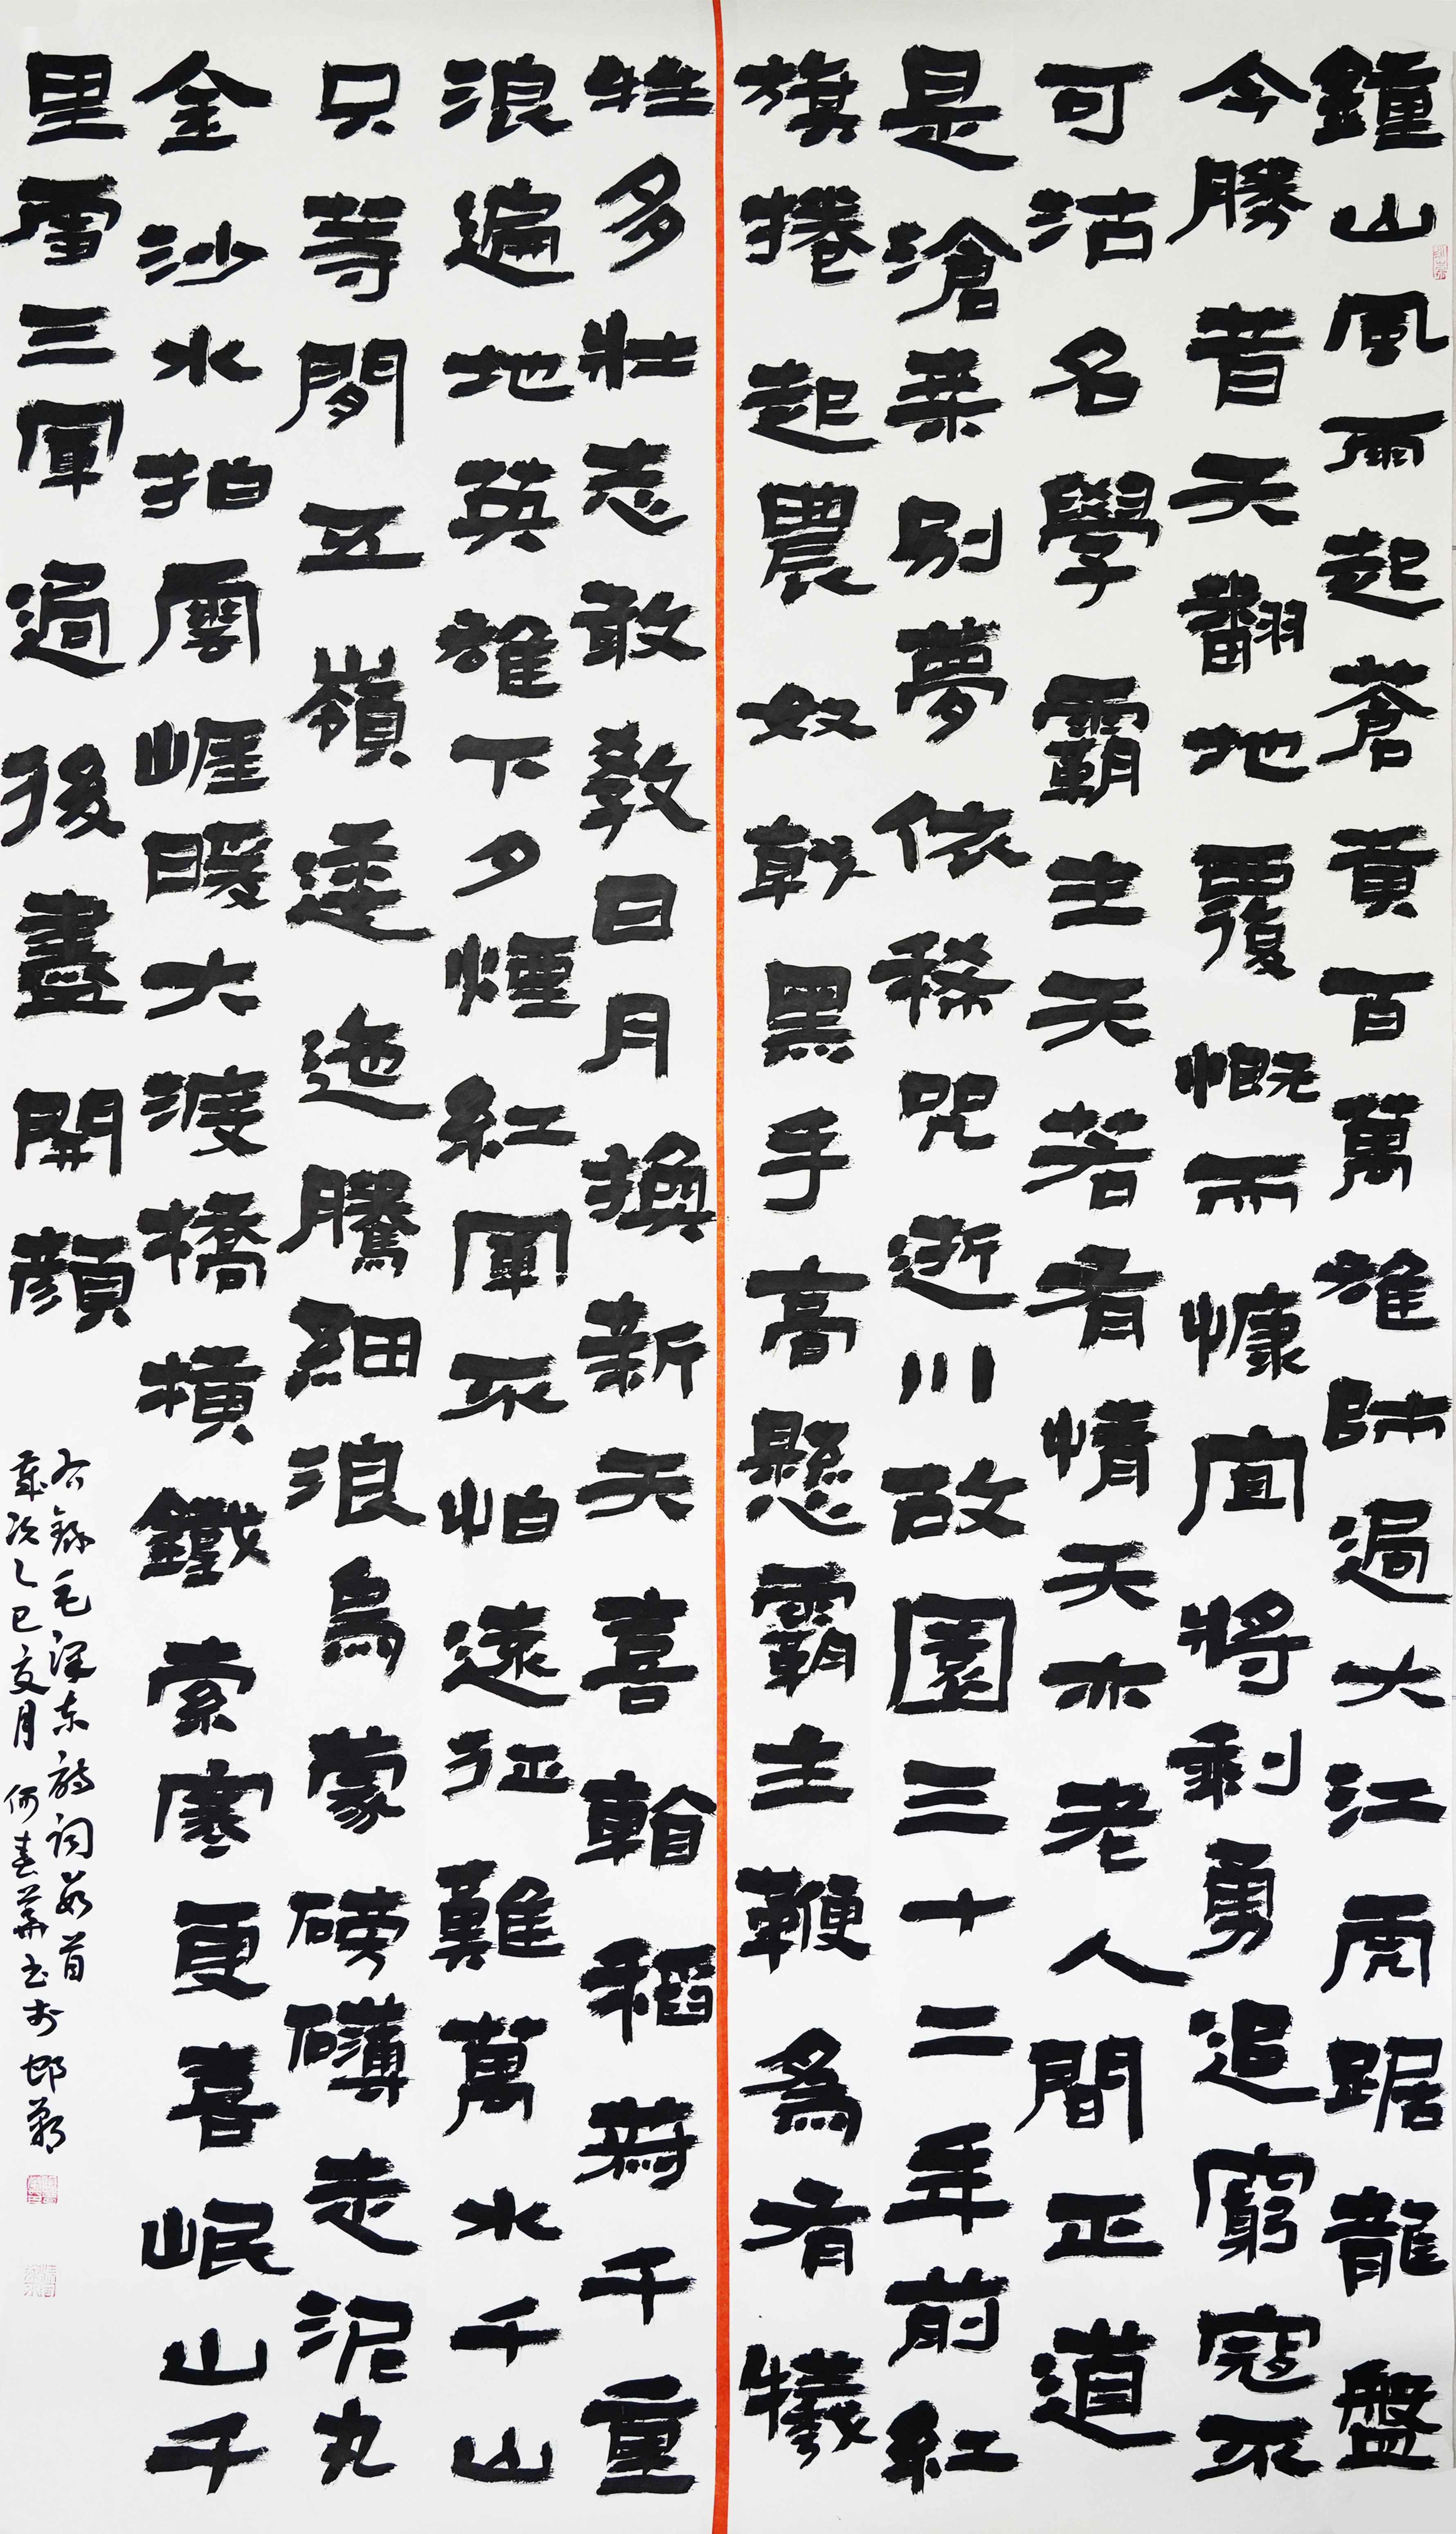 鐘山風雨起蒼黄百萬雄師過大江虎踞龍盤
今勝昔天翻地覆慨而慷宜將剩勇追窮寇不
可沽名學霸主天若有情天亦老人間正道
是滄桑别夢依稀咒逝川故園三十二年前紅
旗捲起農奴戟黑手高懸霸主鞭爲有犧
牲多壯志敢教日月換新天喜看稻菽千重
浪遍地英雄下夕煙紅軍不怕遠征難萬水千山
只等閒五嶺逶迤騰細浪烏蒙磅礴走泥丸
金沙水拍雲崖暖大渡橋横鐵索寒更喜岷山千
里雪三軍過後盡開顔
右錄毛澤东詩詞数首
歲次乙巳夏月何春華书於邯鄲